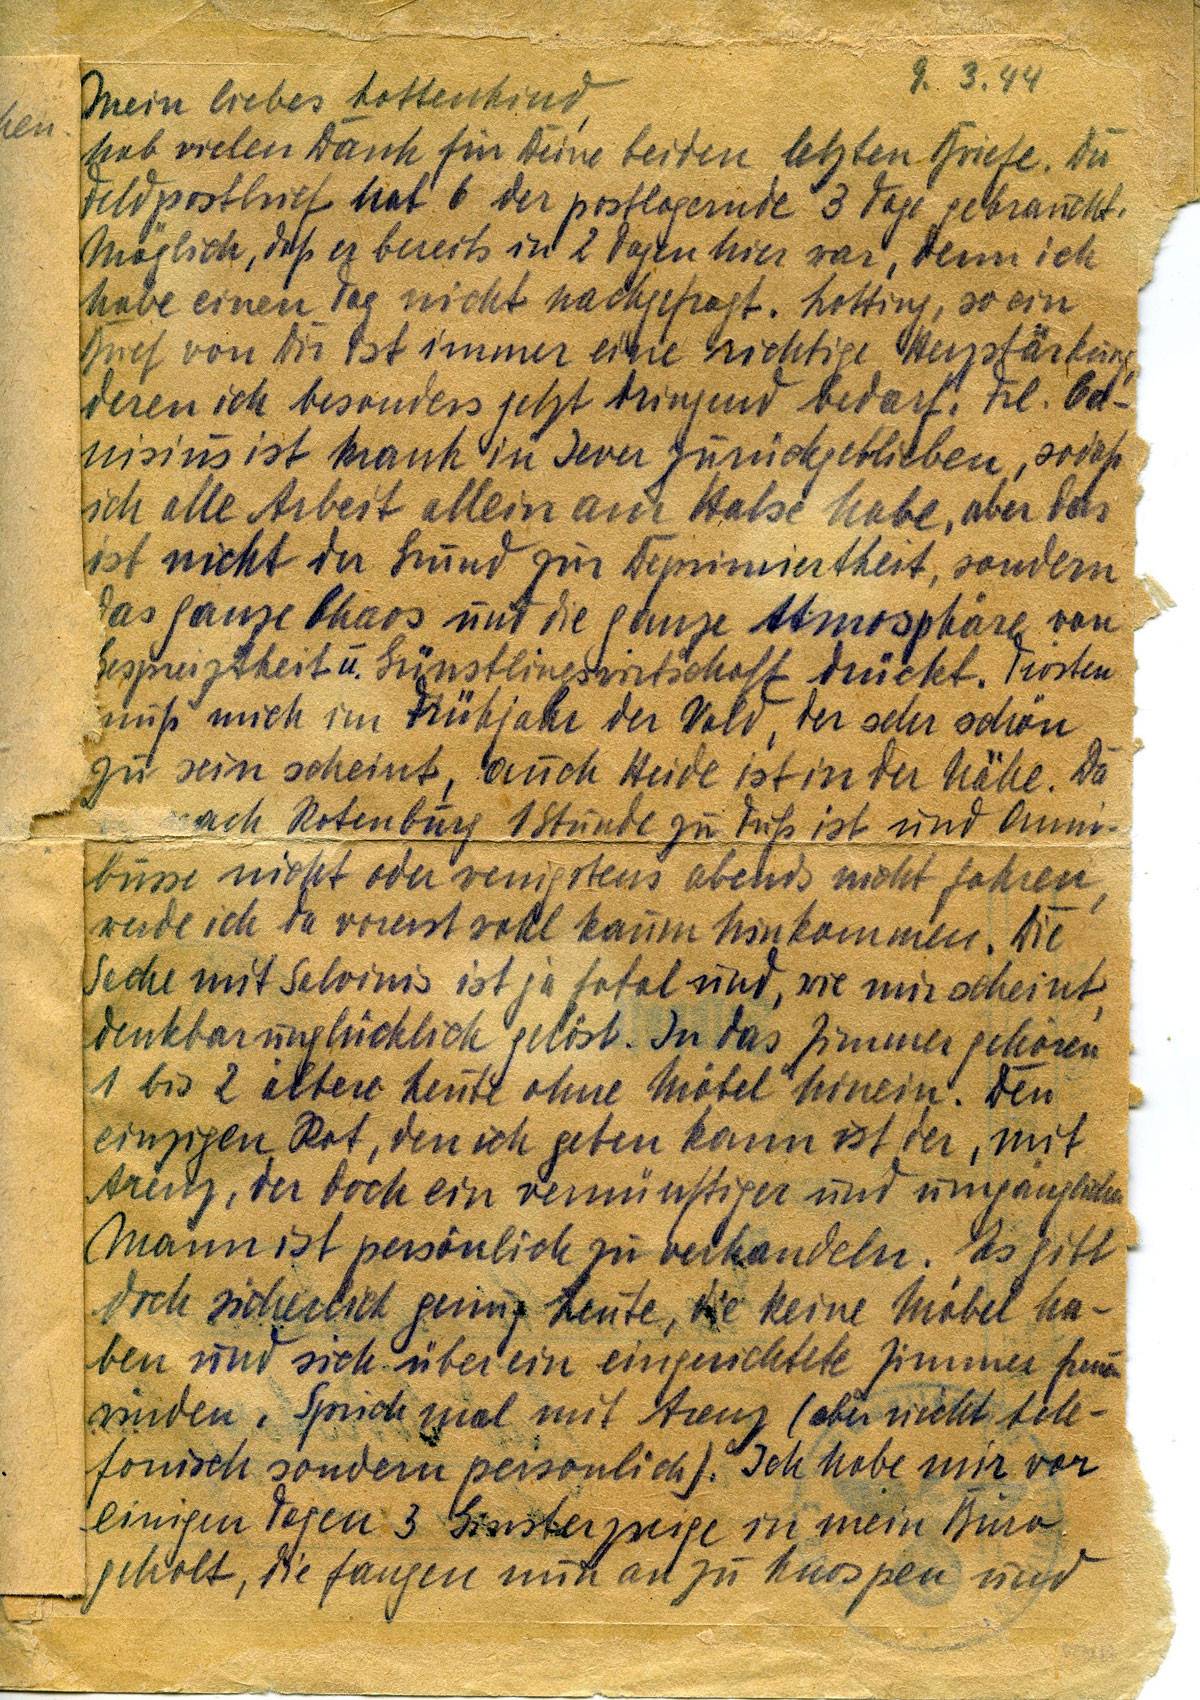 9. 3. 44
Mein liebes Lottenkind,
hab vielen Dank für Deine beiden letzten Briefe. Der
Feldpostbrief hat 6 der postlagernde 3 Tage gebraucht.
Möglich, daß er bereits in 2 Tagen hier war, denn ich
habe einen Tag nicht nachgefragt. Lotting, so ein
Brief von Dir ist immer eine richtige Herzstärkung,
deren ich besonders jetzt dringend bedarf. Frl. Ca-
nisius ist krank in Jever zurückgeblieben, sodaß
ich alle Arbeit allein am Halse habe, aber das
ist nicht der Grund zur Deprimiertheit, sondern
das ganze Chaos und die ganze Atmosphäre von
Gespreiztheit u. Günstlingswirtschaft drückt. Trösten
muß mich im Frühjahr der Wald, der sehr schön
zu sein scheint, auch Heide ist in der Nähe. Da
nach Rotenburg 1 Stunde zu Fuß ist und Omni-
busse nicht oder wenigstens abends nicht fahren,
werde ich da vorerst wohl kaum hinkommen. Die
Sache mit Salvinis ist ja total und, wie mir scheint,
denkbar unglücklich gelöst. In das Zimmer gehören
1 bis 2 ältere Leute ohne Möbel hinein. Den
einzigen Rat, den ich geben kann ist der, mit
Arenz, der doch ein vernünftiger und umgänglicher
Mann ist persönlich zu verhandeln. Es gibt
doch sicherlich genug Leute, die keine Möbel ha-
ben und sich über ein eingerichtete Zimmer freuen
würden. Sprich mal mit Arenz (aber nicht tele-
fonisch sondern persönlich). Ich habe mir vor
einigen Tagen 3 Ginsterzweige in mein Büro
geholt, die fangen nun an zu knospen und